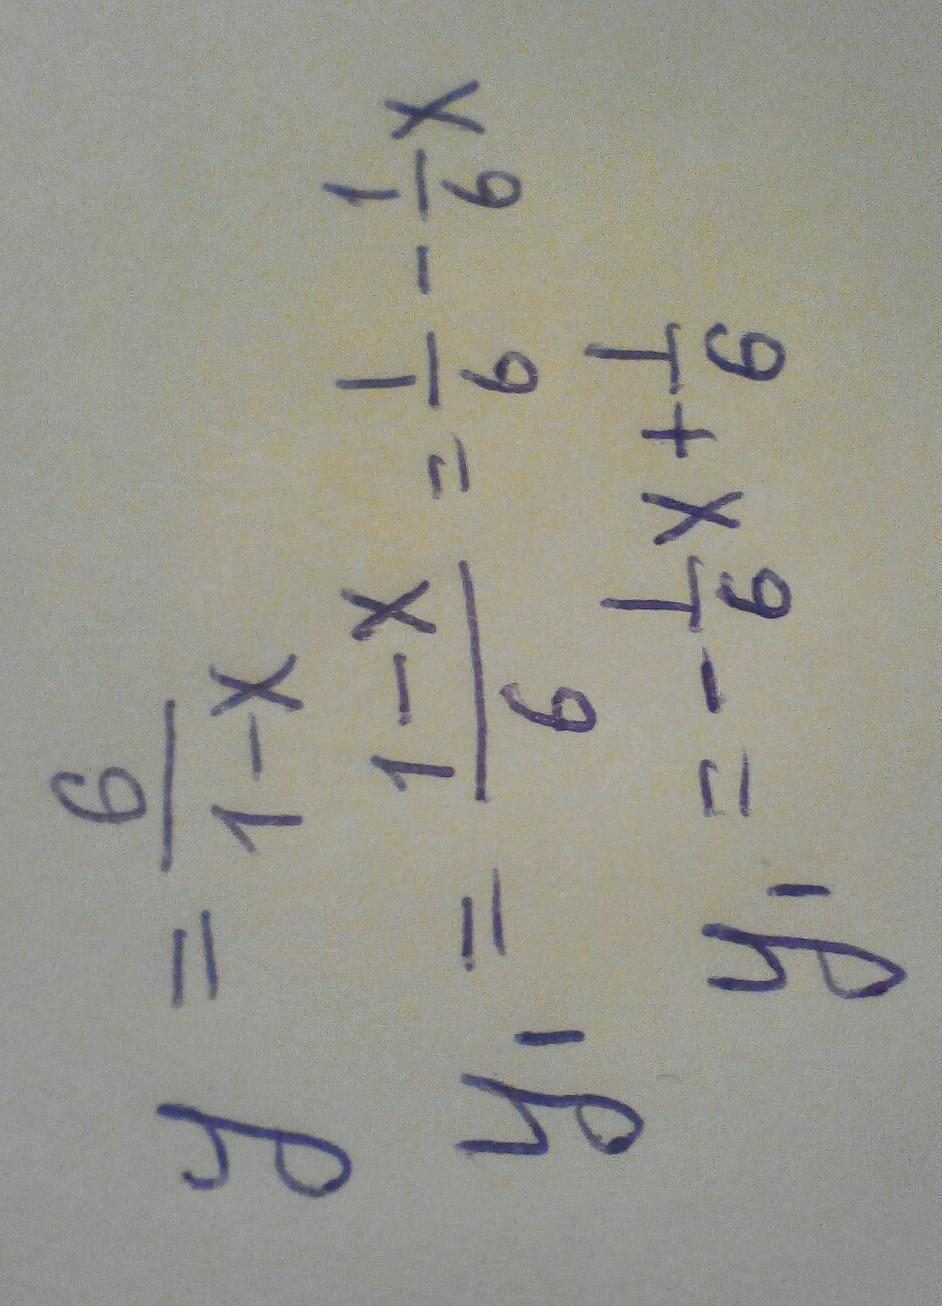 y = 6/(1-x)
y₁ = (1-x)/6 = 1/6 - 1/6 x
y₁ = - 1/6 x + 1/6